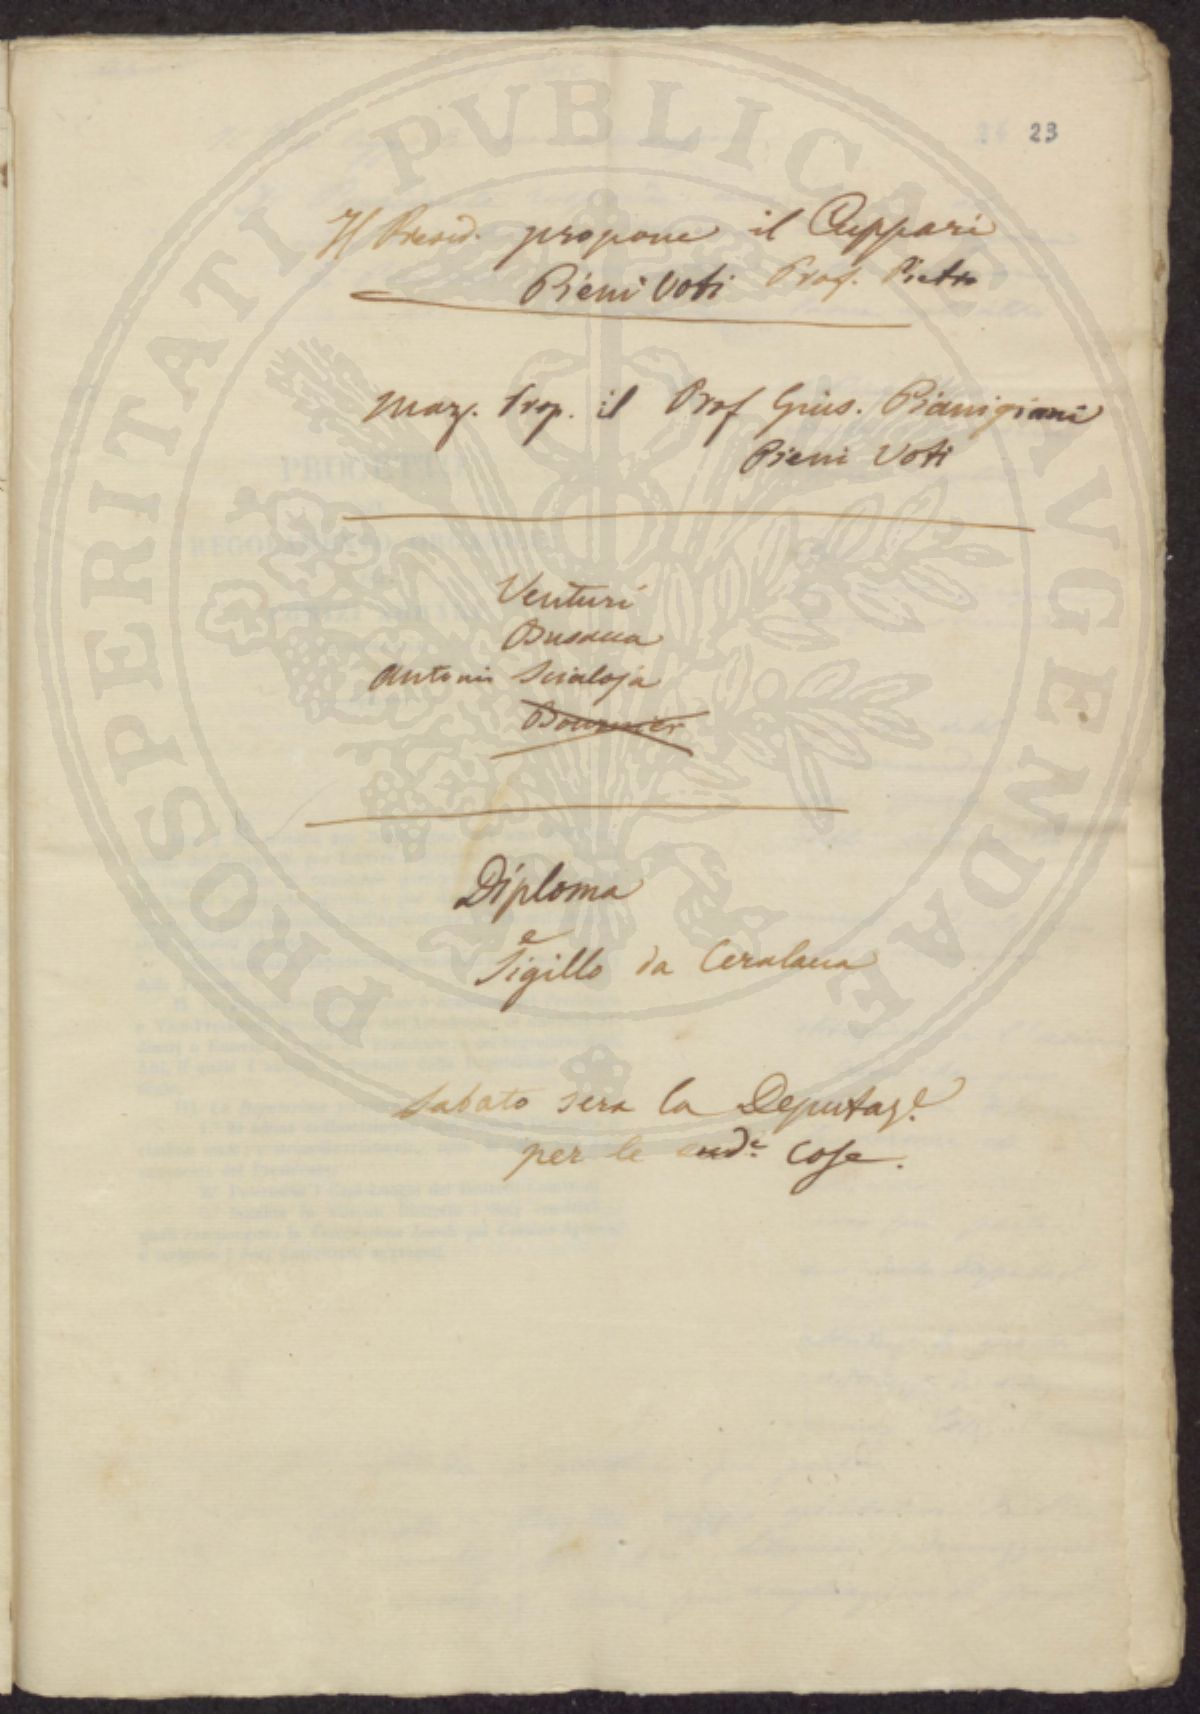 PROSPERITATI PUBLICAE AVGENDAE
23
Il Presid. propone il Cuppari
Pieni Voti Prof. Pietro
Maz. Prop. il Prof Gius. Pianigiani
Pieni Voti
Venturi
Busacca
Antonio Scialoja
Diploma
e
Sigillo da Ceralacca
Sabato sera la Deputaz.e
per le sud.e cose.